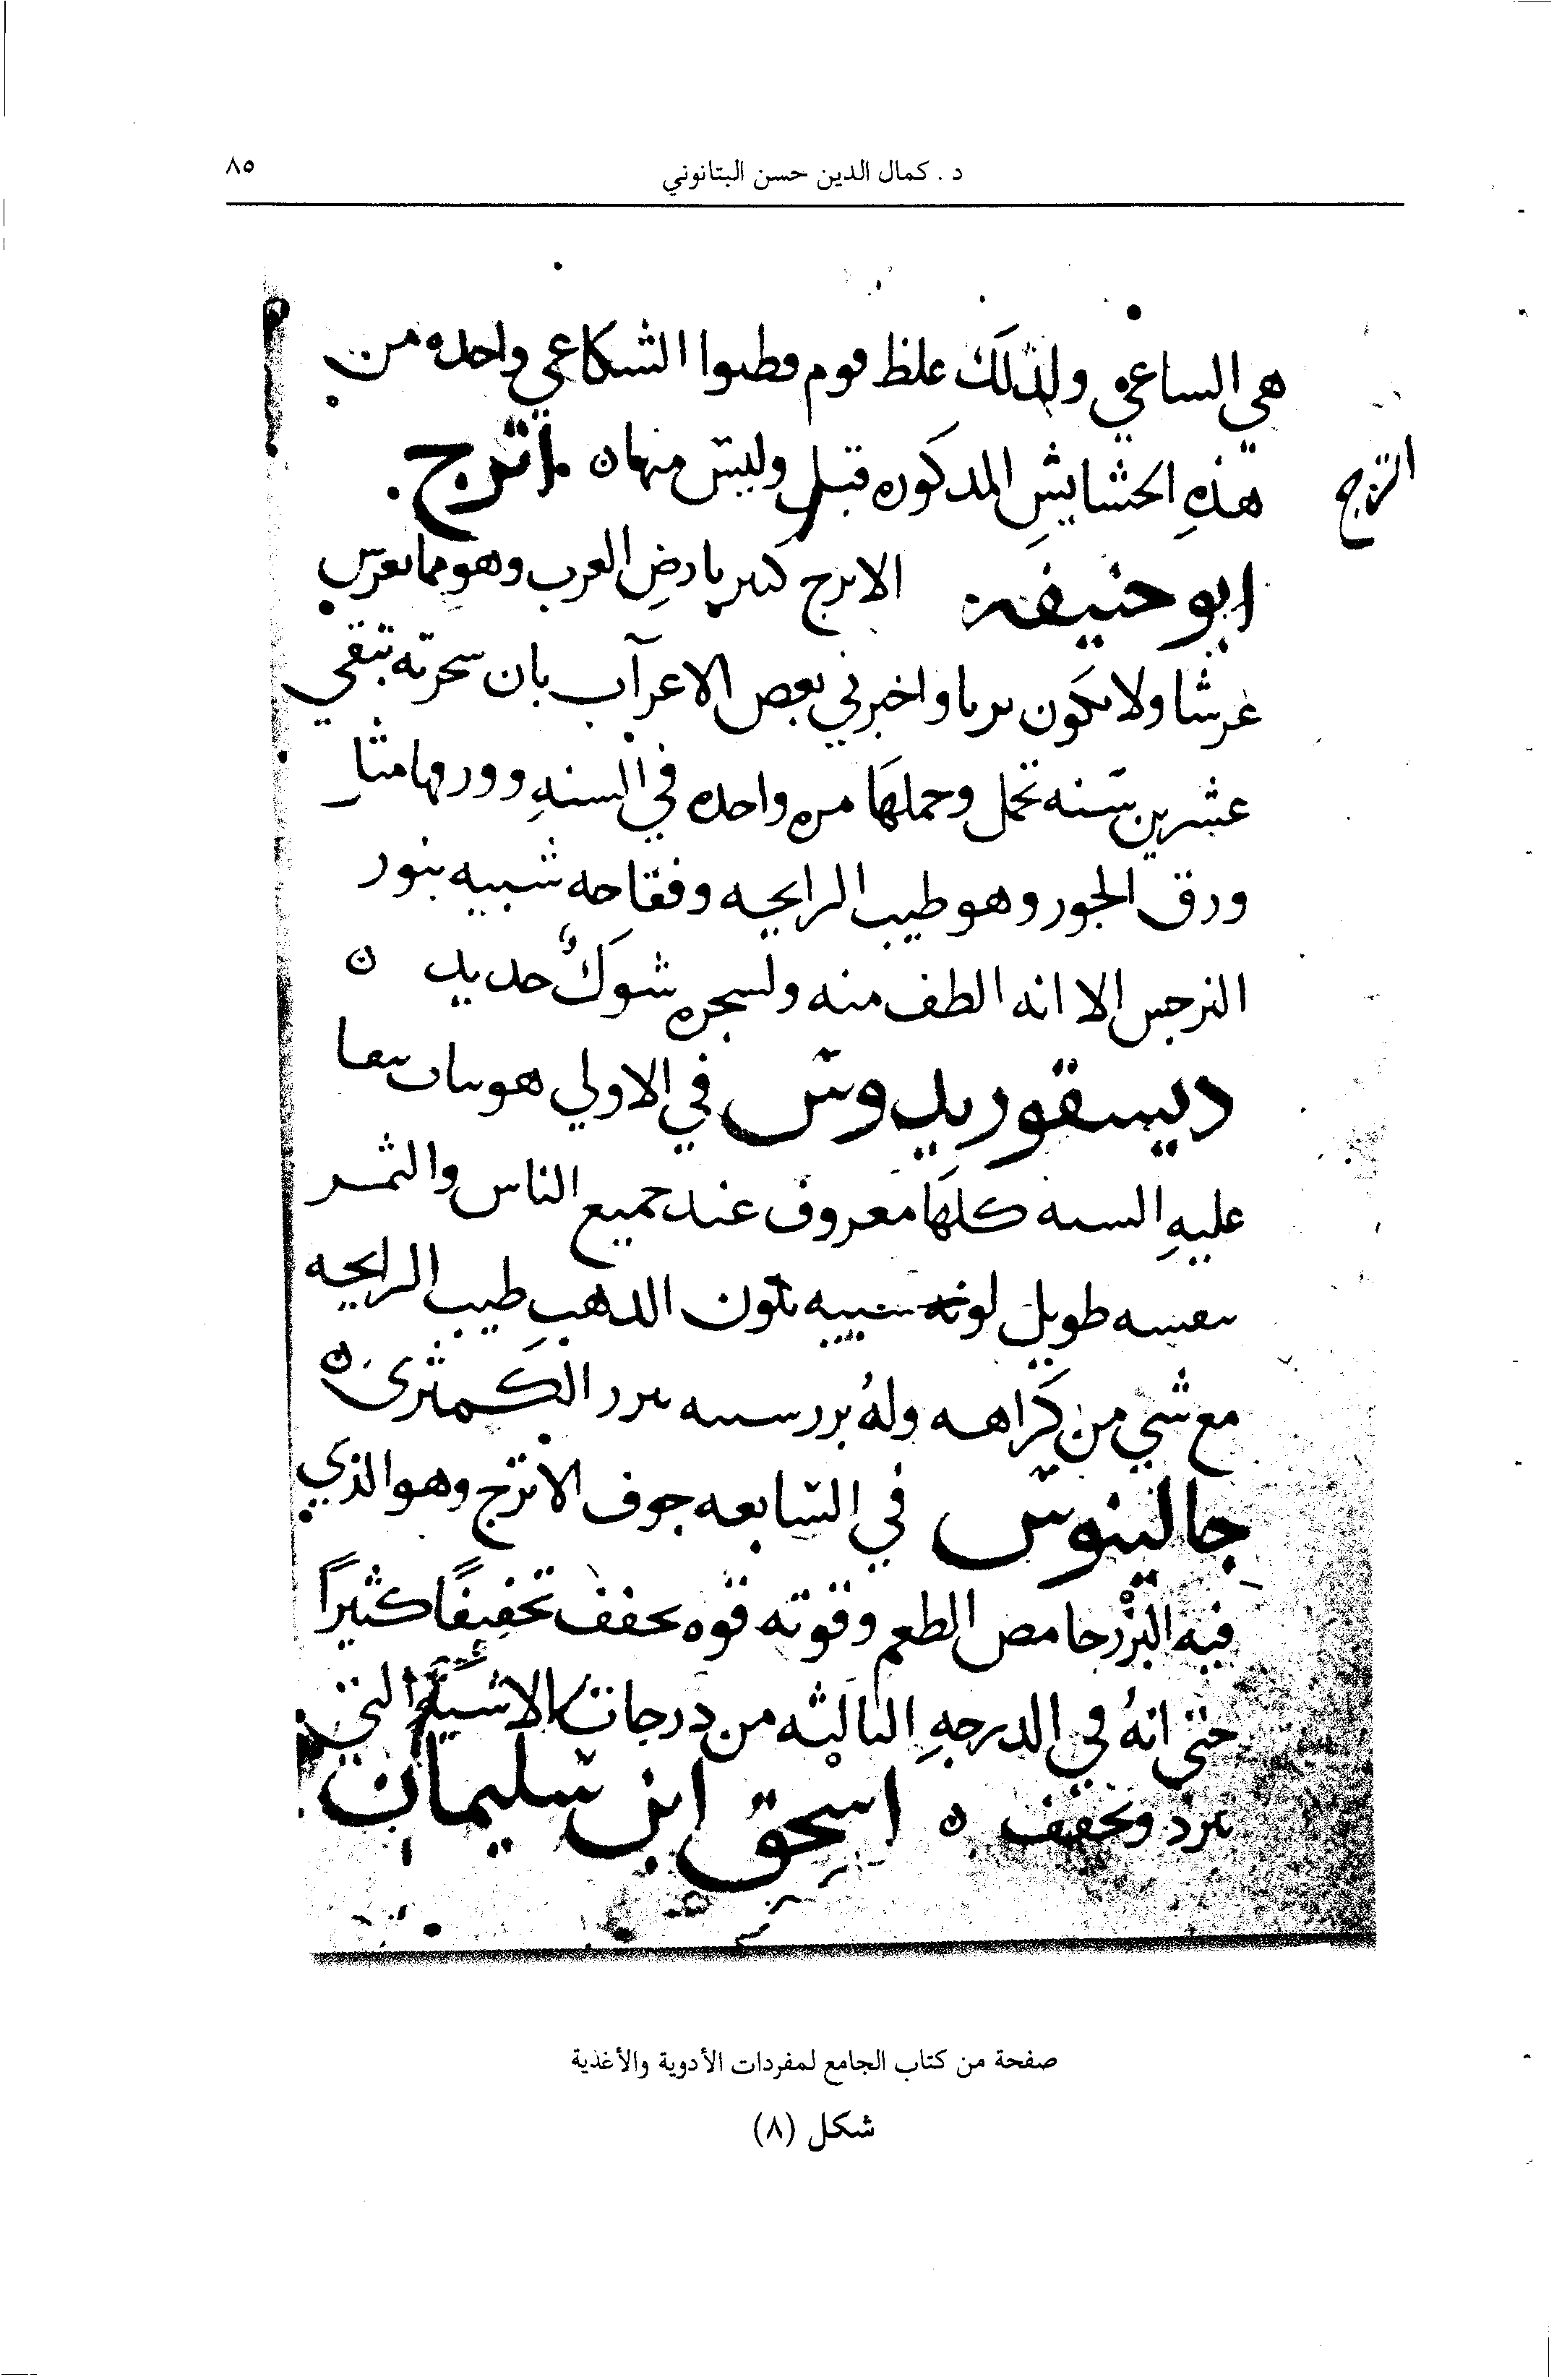 د. كمال الدين حسن البتانوني
٨٥
هي الساعي ولذلك غلظ قوم فظنوا الشكاعي واحده من
هذه الحشايش المدكوره قبل وليس منها ه اترج
الاترج
ابو حنيفه الاترج كثير بارض العرب وهو مما يغرس
غرسًا ولا يكون بريا واخبرني بعض الاعراب بان شجرته تبقي
عشرين سنه تحمل وحملها مره واحده في السنه وورقها مثل
ورق الجوز وهو طيب الرايحه وفقاحه شبيه بنور
النرجس الا انه الطف منه ولشجره شوك حديد ه
ديسقوريدوس في الاولي هو نبات يبقا
عليه السنه كلها معروف عند جميع الناس والثمر
نفسه طويل لونه شبيه بلون الدهب طيب الرايحه
مع شي من كراهه وله بزر شبيه ببزر الكمثرى ه
جالينوس في السابعه جوف الاترج وهو الذي
فيه البزر حامض الطعم وقوته قوه تجفف تجفيفًا كثيرًا
حتى انهُ في الدرجه الثالثه من درجات الاشياء التي
تبرد وتجفف ه اسحق ابن سليمان
صفحة من كتاب الجامع لمفردات الأدوية والأغذية
شكل (٨)